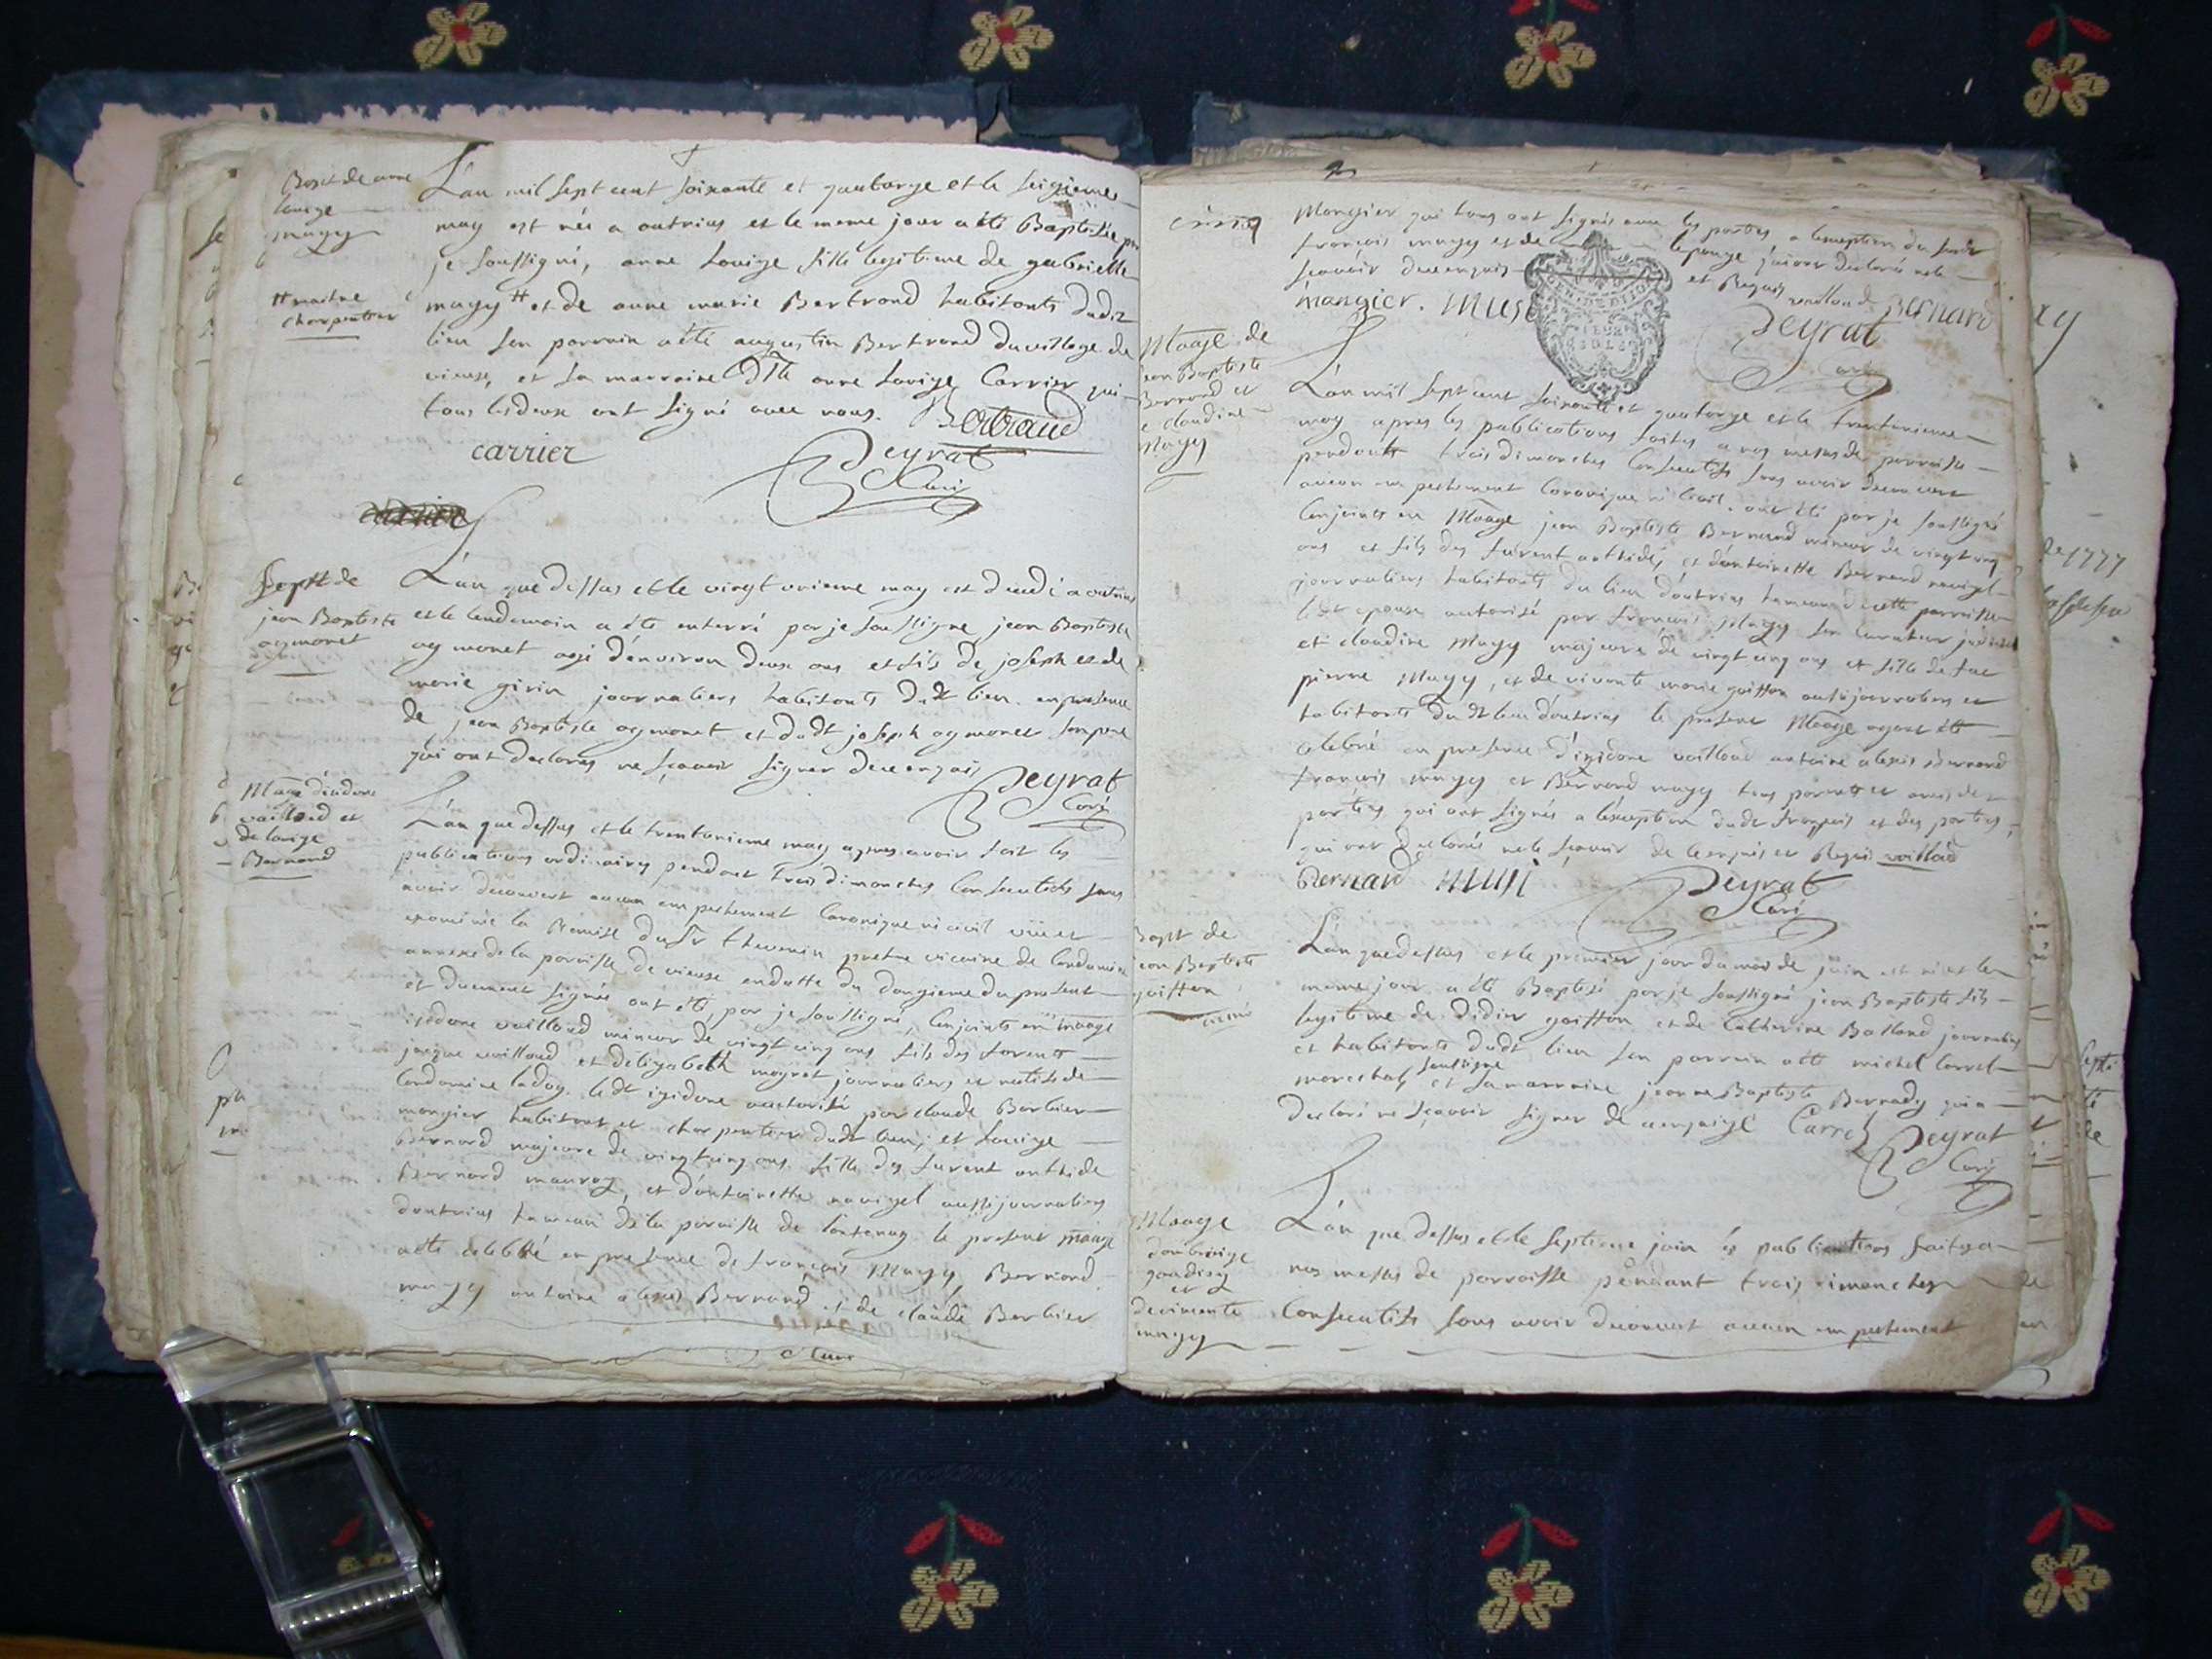 Bapt de anne
Louise
mugy
L'an mil sept cent soixante et quatorze et le seizieme
may est née a outrias et le meme jour a été Baptisée par
je soussigné, anne Louise fille legitime de gabrielle
# maitre
charpentier
mugy # et de anne marie Bertrand habitants dudit
lieu son parrain a été augustin Bertrand du village de
vieuse, et sa marraine Dlle anne Louise Carrier qui
tous les deux ont signé avec nous. Bertrand
carrier Peyrat
Curé
Sepłt de
jean Baptiste
aymonet
L'an que dessus et le vingt unieme may est decedé a outrias
et le lendemain a été enterré par je soussigne jean Baptiste
aymonet agé d'environ deux ans et fils de joseph et de
marie girin journaliers habitants dudt lieu en presence
de jean Baptiste aymonet et dudt joseph aymonet son pere
qui ont declarés ne sçavoir signer de ce enquis Peyrat
Curé
Maage d'isidore
vailloud et
de louise
Bernard
L'an que dessus et le trentunieme may apres avoir fait les
publications ordinaires pendant trois dimanches consecutifs sans
avoir decouvert aucun empechement canonique ni civil vüe et
examinée la Remise du Sr thevenin pretre vicaire de Condamine
annexe de la paroisse de vieuse en datte du douzieme du present
et duement signée ont été, par je soussigné, conjoints en maage
isidore vailloud mineur de vingt cinq ans fils des furent
jacque vailloud et d'elizabeth mayret journaliers et natifs de
Condamine ladoy. ledt izidore authorisé par claude Barbier
mongier habitant et charpentier dudt lieu; et Louise
Bernard majeure de vingt cinq ans fille des furent anthide
Bernard mauroy, et d'antoinette navizel aussi journaliers
d'outrias hameau de la paroisse de lantenay le present maage
a été celebré en presence de françois Mugy, Bernard
mugy antoine alexis Bernard et de claude Barbier
cinq
Mongier qui tous ont signés avec les parties a l'exception dudt
françois mugy et de l'epouse qui ont declarés ne le
sçavoir de ce enquis et Requis vailloud Bernard
mangier. Musi Peyrat
Curé
Maage de
jean Baptiste
Bernard et
de claudine
Mugy
L'an mil sept cent soixante et quatorze et le trentunieme
may apres les publications faites a nos messes de parroisse
pendants trois dimanches consecutifs sans avoir decouvert
aucun empechement canonique ni civil. ont été par je soussigné
conjoints en Maage jean Baptiste Bernard mineur de vingt cinq
ans et fils des furent anthide, et d'antoinette Bernard navizel
journaliers habitants du lieu d'outrias hameau de cette parroisse
ledt epoux autorisé par françois Mugy son curateur
et claudine Mugy majeure de vingt cinq ans et fille de fue
pierre Mugy, et de vivante marie goiffon aussi journaliers et
habitants dudt lieu d'outrias le present Maage ayant été
celebré en presence d'izidore vailloud antoine alexis Bernard
françois mugy et Bernard mugy tous parents et amis des
parties qui ont signés a l'exception dudt françois et des parties,
qui ont declarés ne le sçavoir de ce enquis et Requis vailloud
Bernard Musi Peyrat
Curé
Bapt de
jean Baptiste
goiffon
L'an que dessus et le premier jour du mois de juin est né et le
meme jour a été Baptisé par je soussigné jean Baptiste fils
legitime de Didier goiffon et de Catherine Balland journaliers
et habitants dudt lieu son parrain a été michel Carrel
marechal soussigné et sa marraine jeanne Baptiste Bernady qui a
declaré ne sçavoir signer de ce enquise Carrel Peyrat
Curé
Maage
d'ambroise
goudisy
et
de vincente
mugy
L'an que dessus et le septieme juin es publications faites a
nos messes de parroisse pendant trois dimanches
Consecutifs sans avoir decouvert aucun empechement